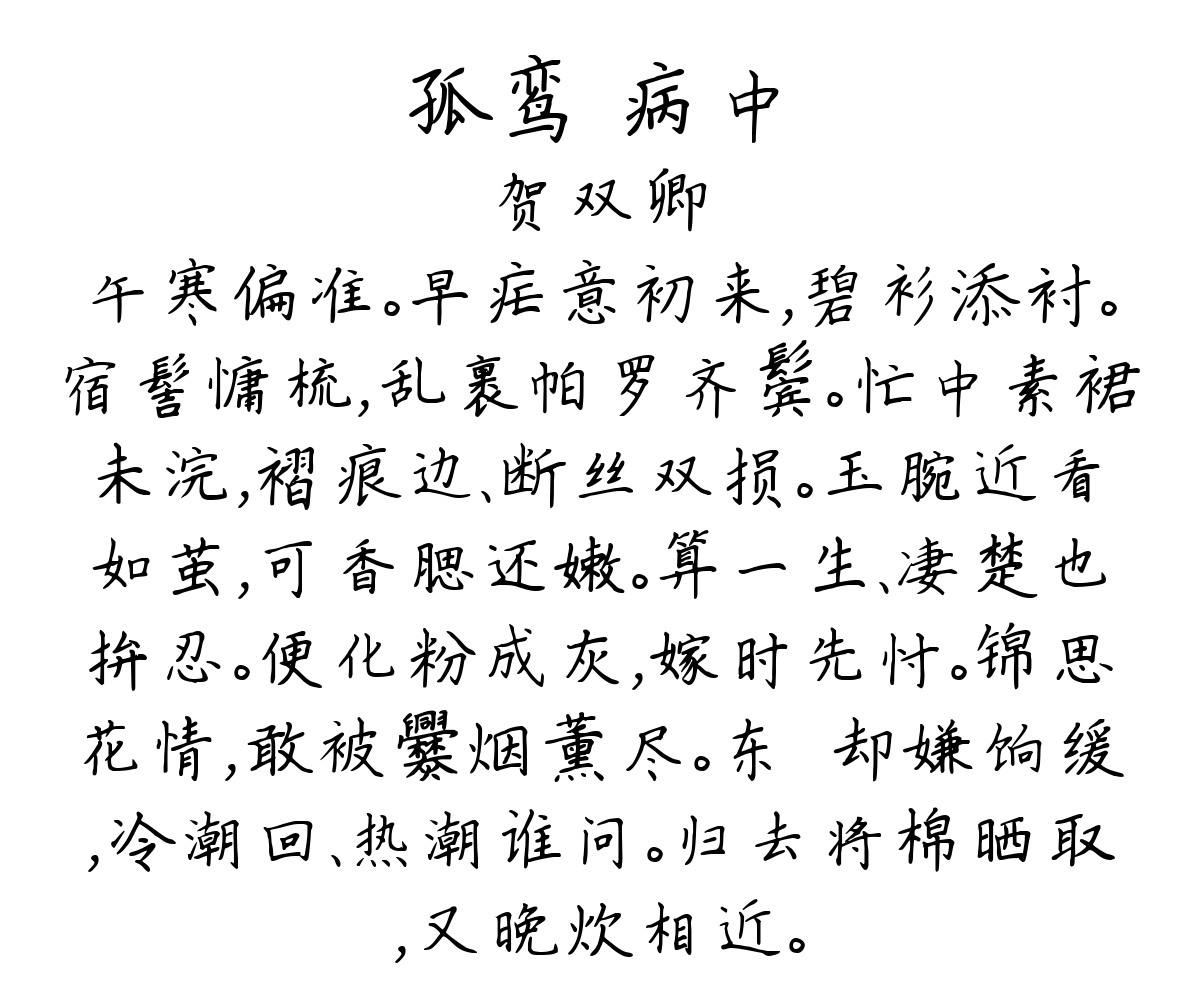 孤鸾 病中
贺双卿
午寒偏准。早疟意初来,碧衫添衬。
宿髻慵梳,乱裹帕罗齐鬓。忙中素裙
未浣,褶痕边、断丝双损。玉腕近看
如茧,可香腮还嫩。算一生、凄楚也
拚忍。便化粉成灰,嫁时先忖。锦思
花情,敢被爨烟薰尽。东 却嫌饷缓
,冷潮回、热潮谁问。归去将棉晒取
,又晚炊相近。